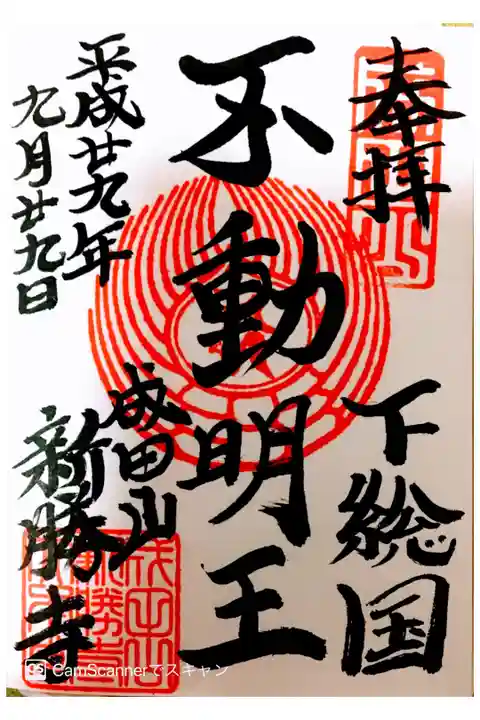 奉拝
下総国
不動明王
成田山
新勝寺
平成廿九年
九月廿九日
CamScannerでスキャン